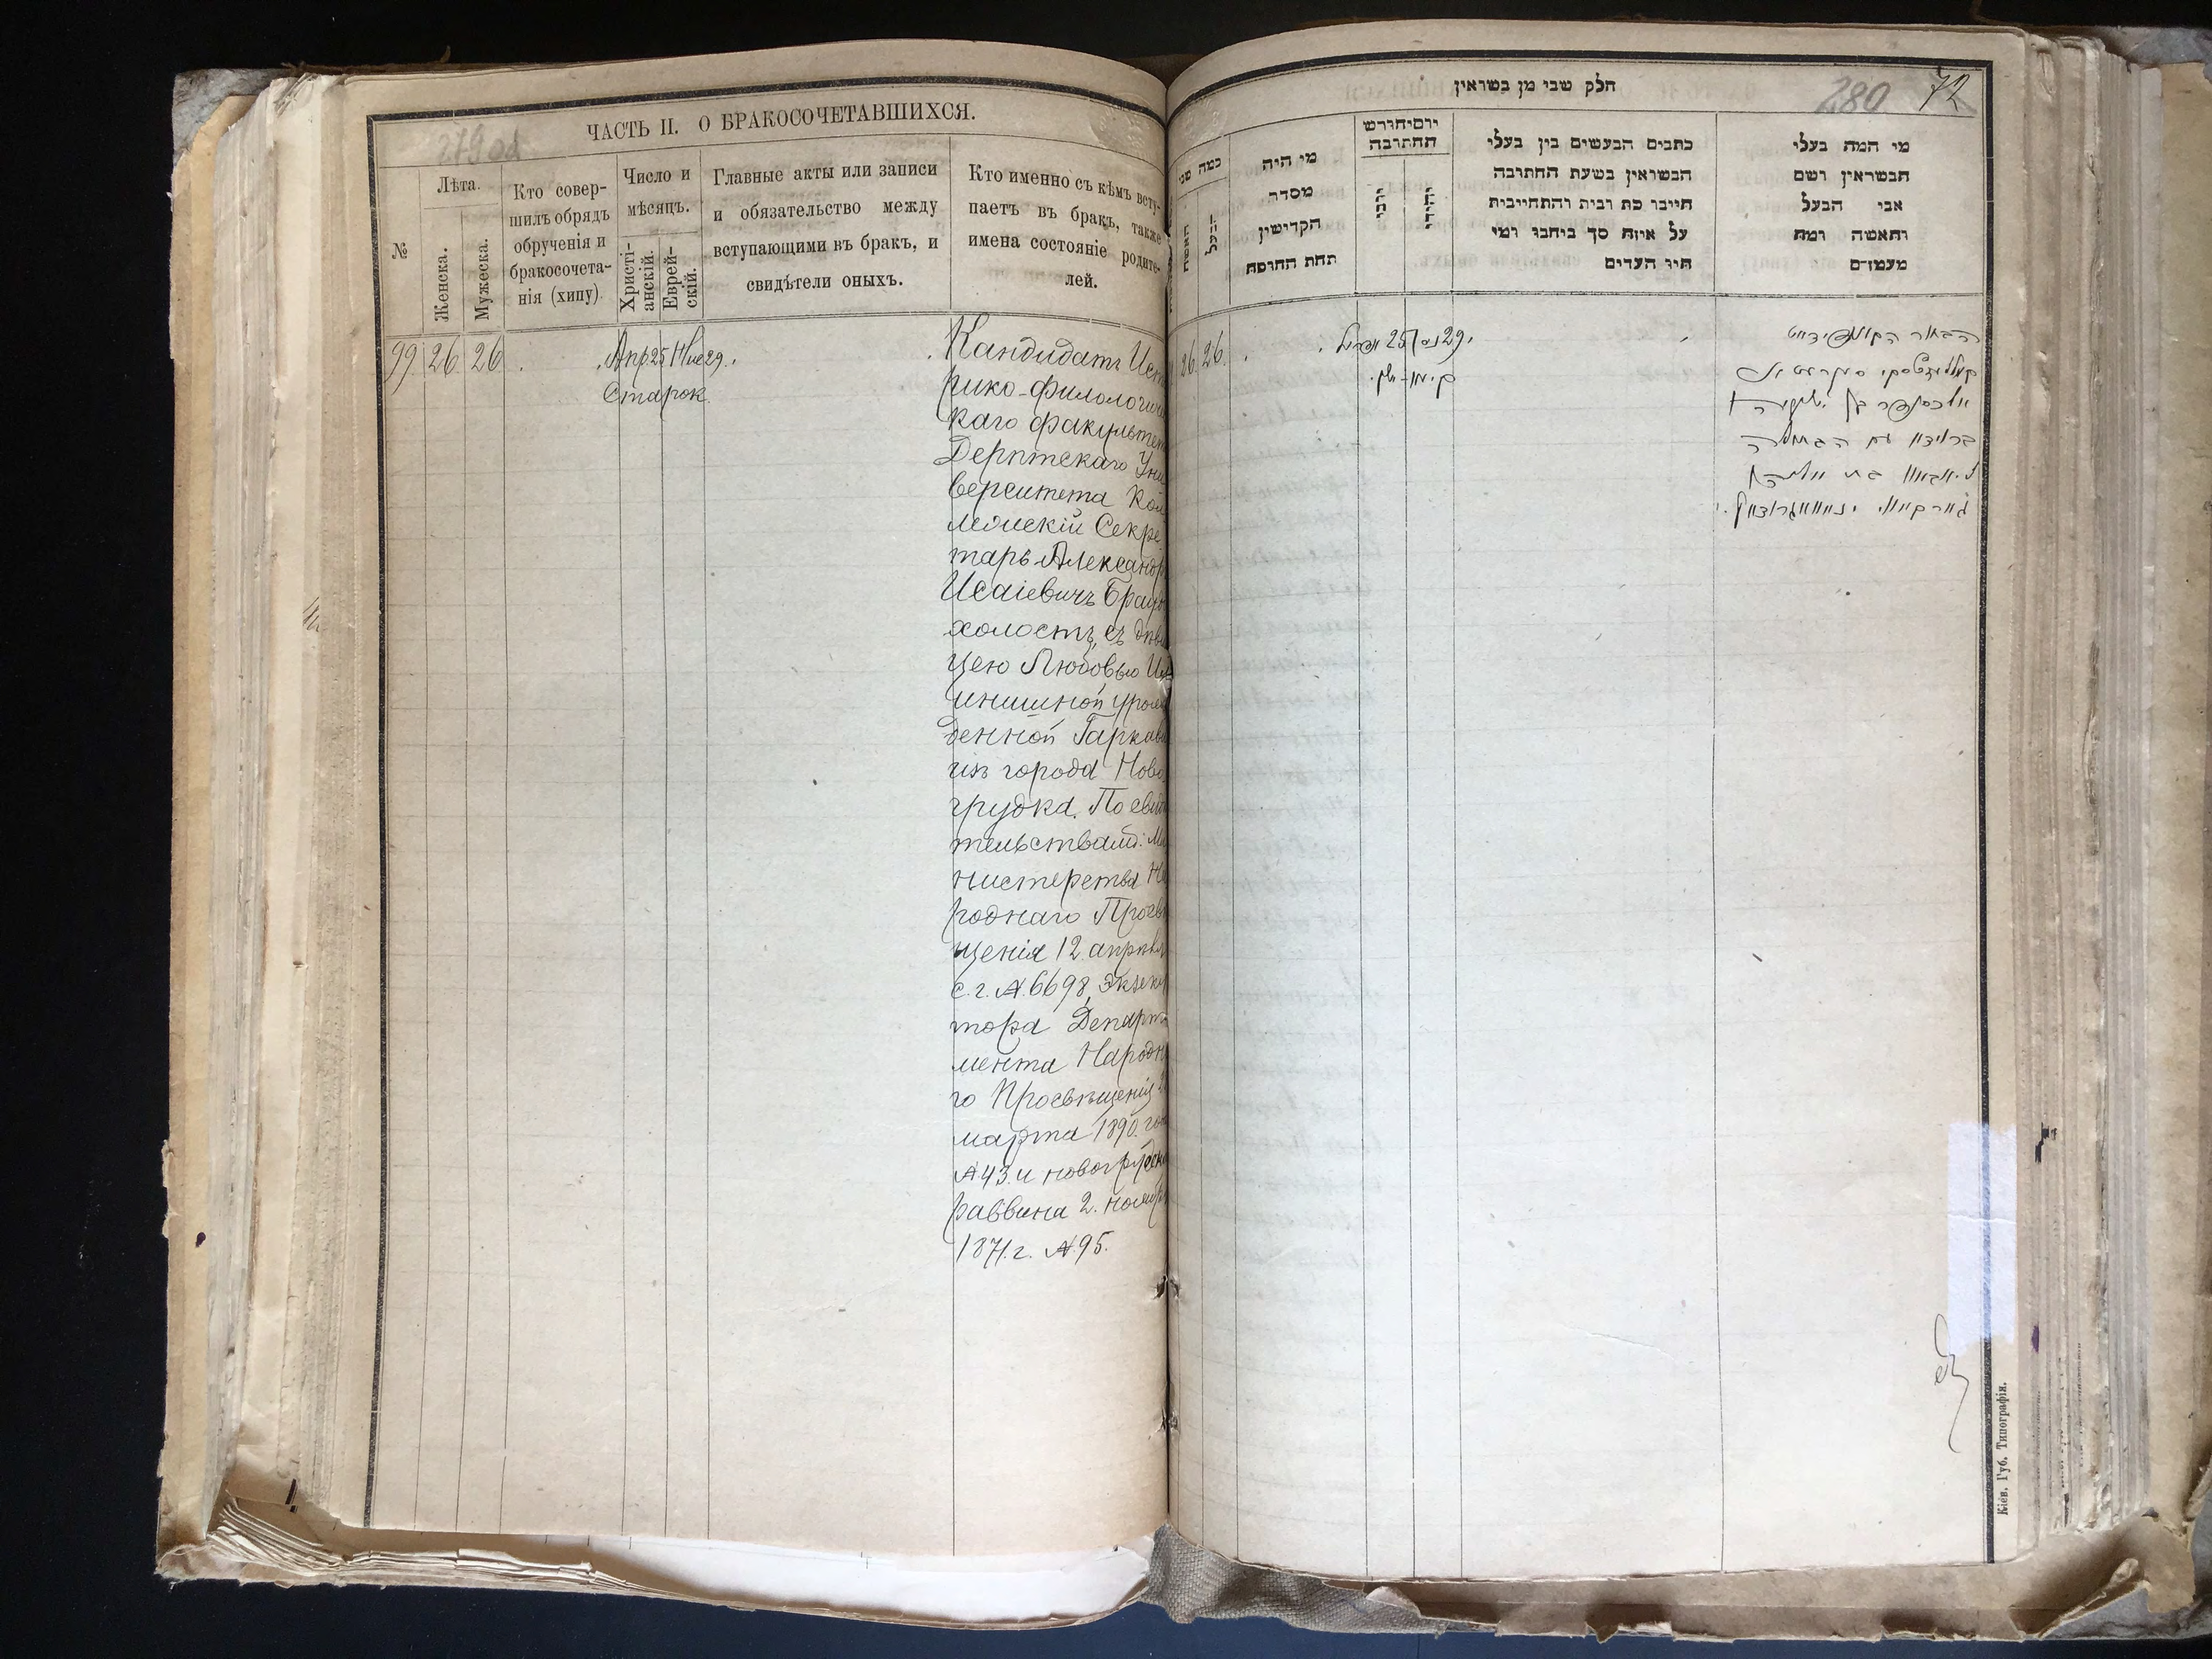 279 об
ЧАСТЬ II. О БРАКОСОЧЕТАВШИХСЯ.
№
Лѣта.
Женска.
Мужеска.
Кто совер-
шилъ обрядъ
обрученія и
бракосочета-
нія (хипу)
Число и
мѣсяцъ.
Христі-
анскій.
Еврей-
скій.
Главные акты или записи
и обязательство между
вступающими въ бракъ, и
свидѣтели оныхъ.
Кто именно съ кѣмъ всту-
паетъ въ бракъ, также
имена состояніе родите-
лей.
99 26 26 Апр. 25 29.
Старок.
Кандидатъ Исто
рико-филологиче
каго факультет
Дерптскаго Уни
верситета Кол
лежскій Секре
тарь Александр
Исаіевичъ Брауд
холостъ, съ дѣви
цею Любовью
уро
денной Гаркави
изъ города Ново
грудка. По свид
тельствамъ: Ми
нистерства На
роднаго Просвѣ
щенія 12 апрѣл
с. г. №. 6698, Экзеку
тора Департа
мента Народн
го Просвѣщенія
марта 1890. го
№ 43. и новогрудск
раввина 2. ноябр
1871. г. № 95.
חלק שני מן בשואין
280 72
כמה שני
האשה
הבעל
מי היה
מסדר
הקדישין
תחת החופה
יום וחודש
החתובה
כתבים הבעשים בין בעלי
הבשואין בשעת החתובה
חייבו כת רבית והתחייבית
על איזה סך ביחבו ומי
היו העדים
מי המה בעלי
הבשואין ושם
אבי הבעל
והאשה ומה
מעמדם
26 26 25 אפריל 29
הבחור הקאנדידאט
אלכסנדר בן ישעיה
ברוידא עם הבתולה
גארקאווי
Кіев. Губ. Типографія.